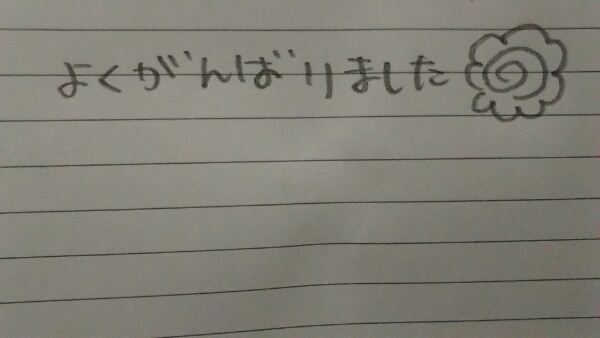 よくがんばりました